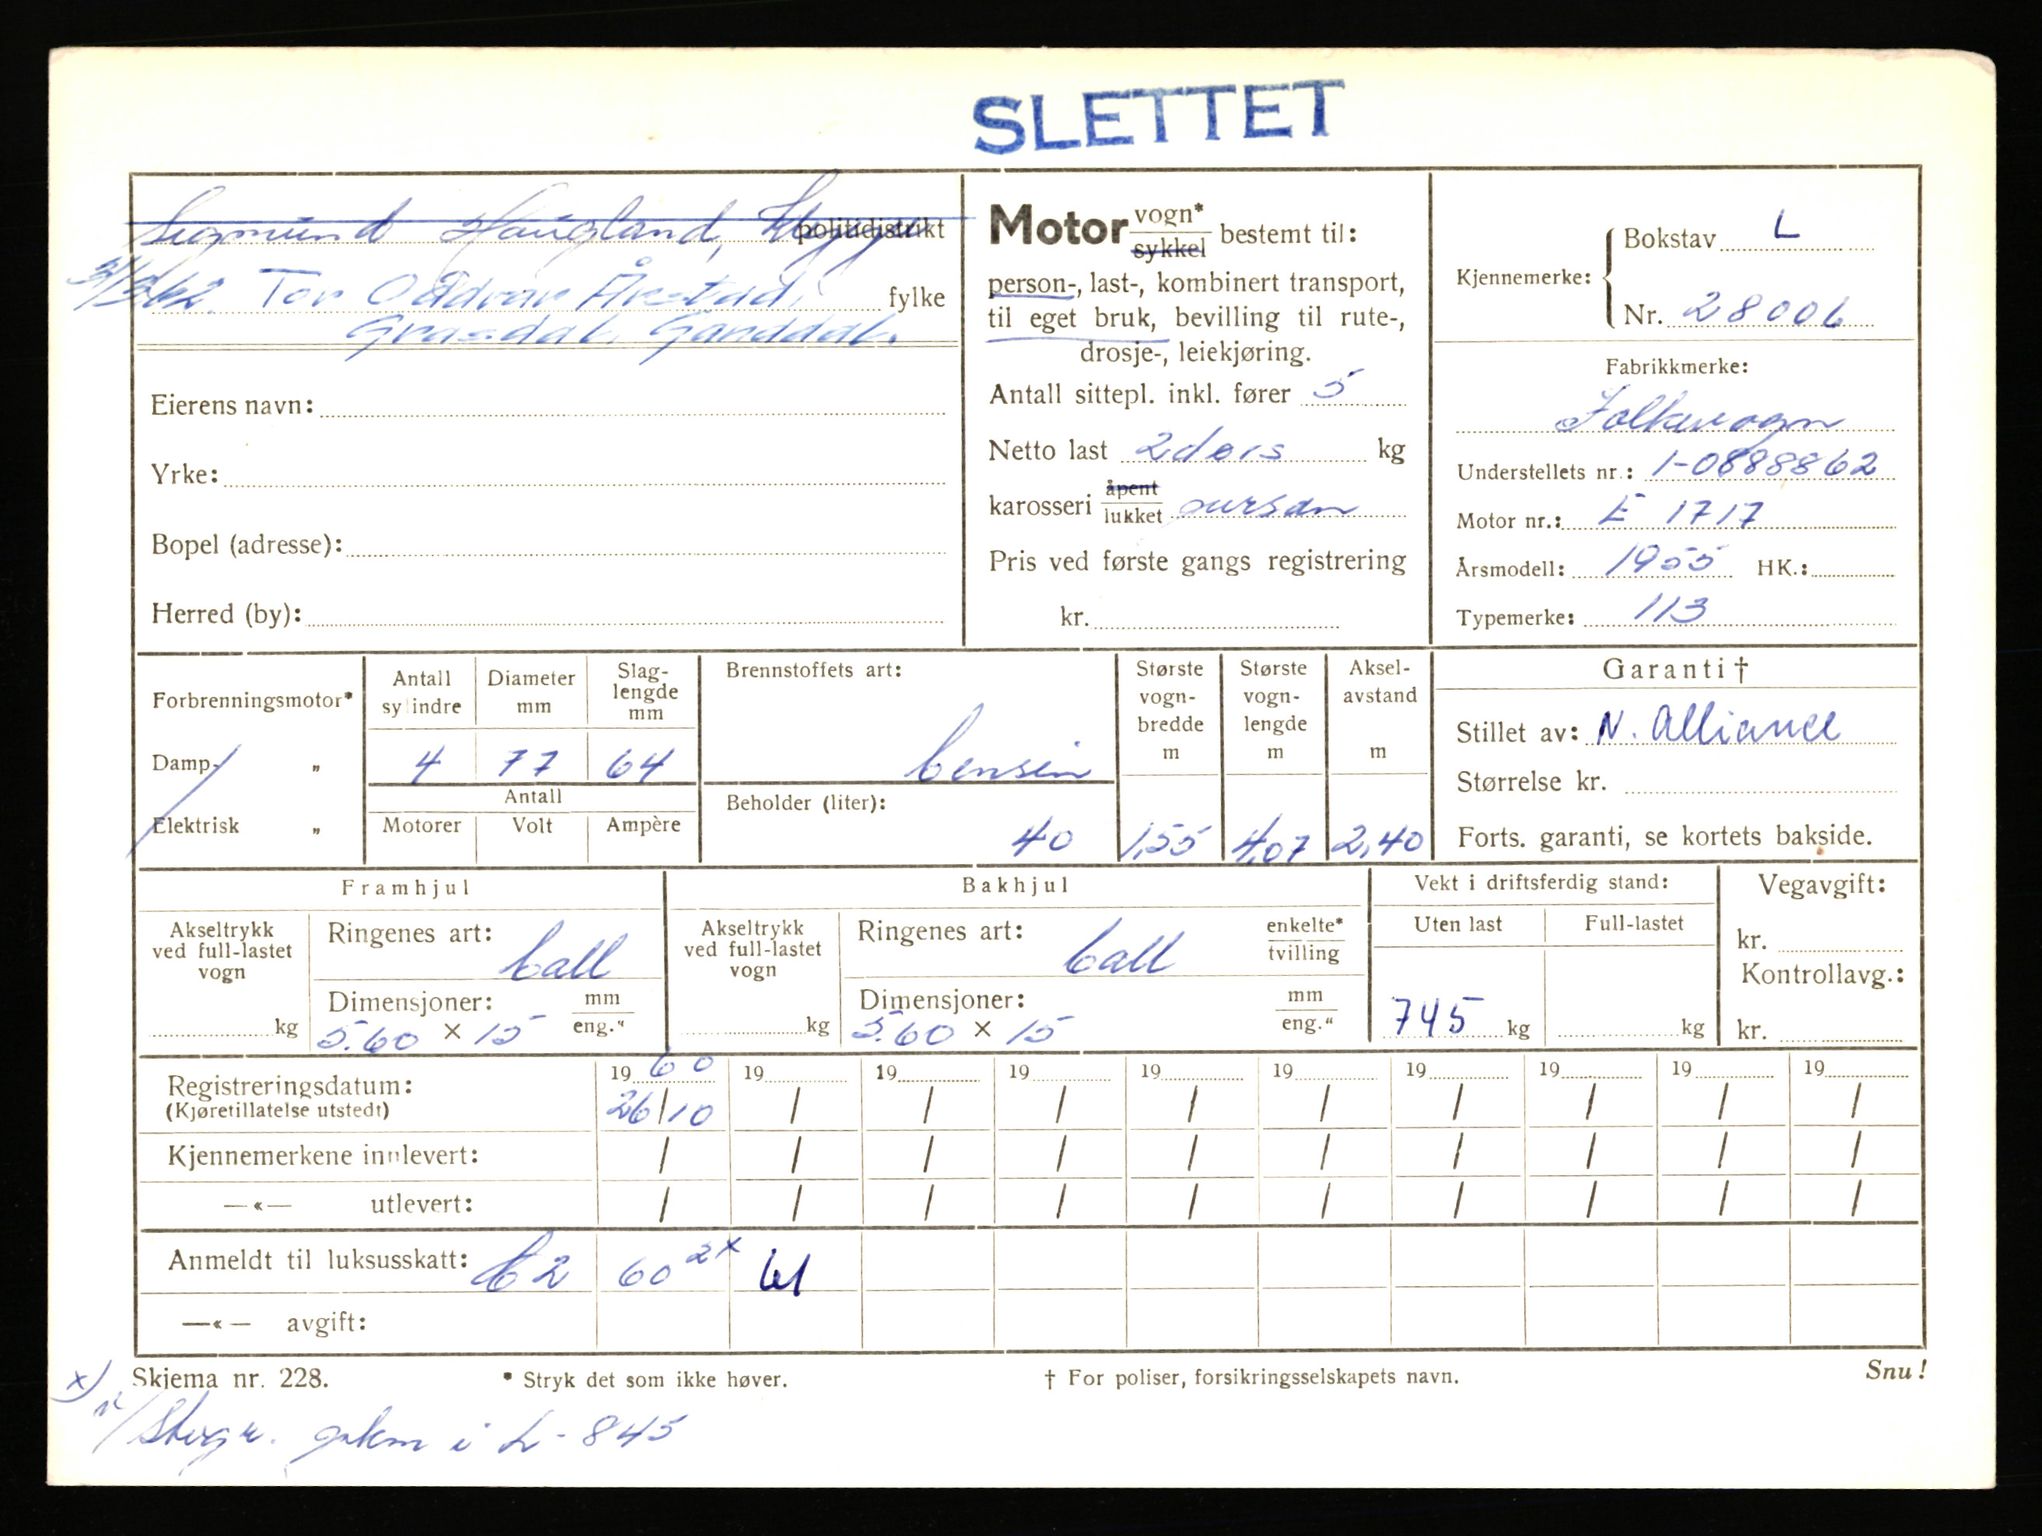 SLETTET
Sigmund Haugland, politidistrikt
Tor Oddvar Årstad, fylke
Grasdal, Ganddal.
Eierens navn:
Yrke:
Bopel (adresse):
Herred (by):
Motor vogn* sykkel bestemt til:
person-, last-, kombinert transport,
til eget bruk, bevilling til rute-,
drosje-, leiekjøring.
Antall sittepl. inkl. fører 5
Netto last 2 dørs kg
karosseri åpent lukket
Pris ved første gangs registrering
kr.
Kjennemerke: Bokstav L
Nr. 28006
Fabrikkmerke:
Folkevogn
Understellets nr.: 1-0888862
Motor nr.: E 1717
Årsmodell: 1955 HK.:
Typemerke: 113
Forbrenningsmotor*
Damp- „
Elektrisk „
Antall sylindre Diameter mm Slaglengde mm
4 77 64
Antall
Motorer Volt Ampère
Brennstoffets art:
bensin
Beholder (liter):
40
Største vognbredde m
1,55
Største vognlengde m
4,07
Akselavstand m
2,40
Garanti †
Stillet av: N. Alliance
Størrelse kr.
Forts. garanti, se kortets bakside.
Framhjul
Akseltrykk ved full-lastet vogn
kg
Ringenes art: ball
Dimensjoner: mm eng."
5.60 × 15
Bakhjul
Akseltrykk ved full-lastet vogn
kg
Ringenes art: ball enkelte* tvilling
Dimensjoner: mm eng."
5.60 × 15
Vekt i driftsferdig stand:
Uten last Full-lastet
745 kg kg
Vegavgift:
kr.
Kontrollavg.:
kr.
Registreringsdatum: 19 60 19 19 19 19 19 19 19 19 19
(Kjøretillatelse utstedt) 26/10 / / / / / / / / /
Kjennemerkene innlevert: / / / / / / / / / /
—«— utlevert: / / / / / / / / / /
Anmeldt til luksusskatt: 60 2x 61
—«— avgift:
Skjema nr. 228. * Stryk det som ikke høver. † For poliser, forsikringsselskapets navn. Snu!
x) i L-845